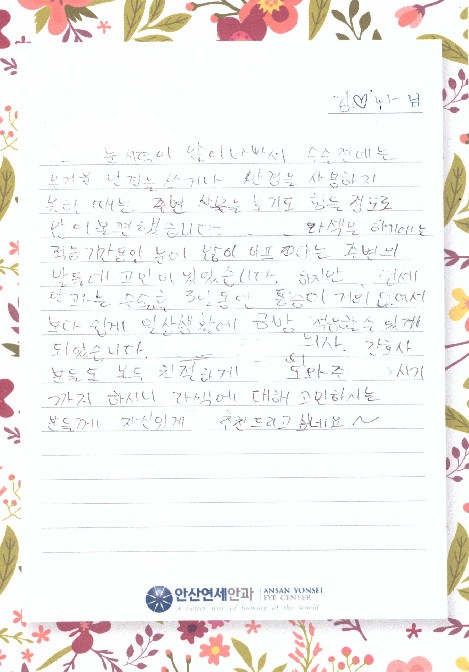 김♡하 님
눈시력이 많이 나빠서 수술전에는
무거운 안경을 쓰거나 안경을 사용하지
못할 때는 주변 사물을 보기도 힘들 정도로
많이 불편했습니다. 라섹을 하기에는
적응기간동안 눈이 많이 아프다는 주변의
말들에 고민이 있었습니다. 하지만 연세
안과는 수술후 3일동안 통증이 거의 없어서
보다 쉽게 일상생활에 금방 적응할수 있게
되었습니다. 의사. 간호사
분들도 모두 친절하게 도와주시기
까지 하시니 라섹에 대해 고민하시는
분들께 자신있게 추천드리고 싶네요~
안산연세안과 ANSAN YONSEI
EYE CENTER
A better way of looking at the world